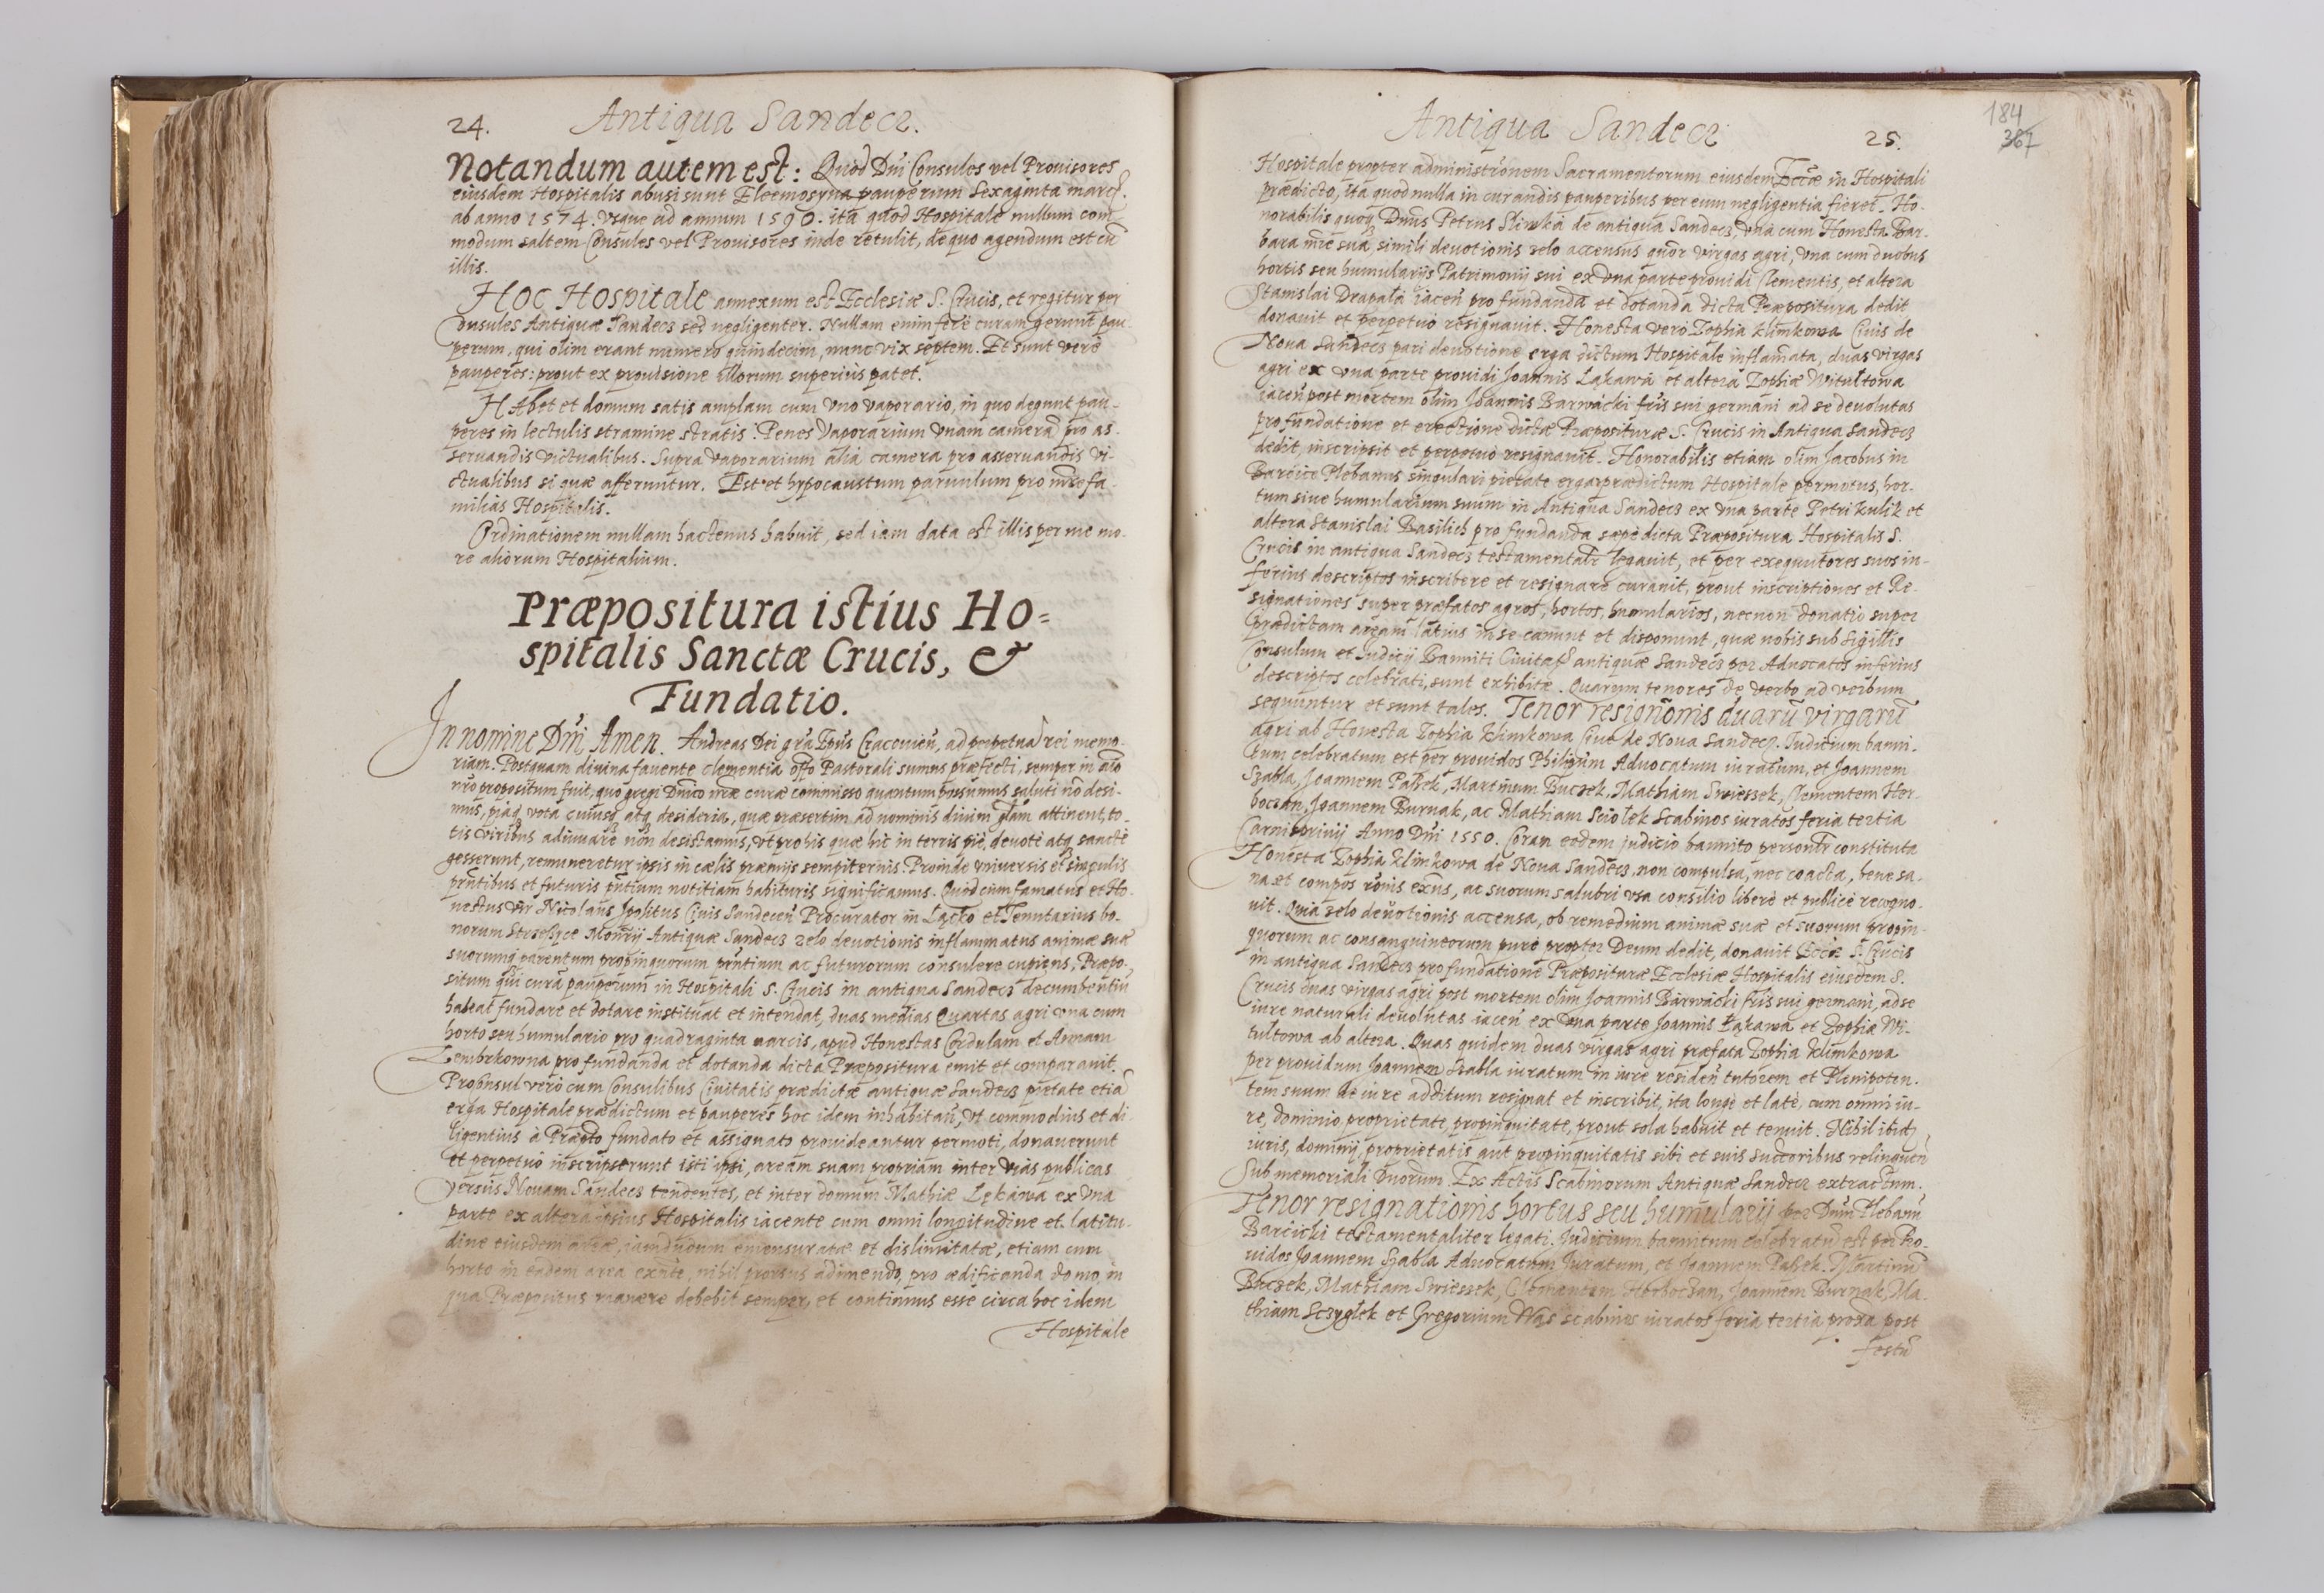 24. Antiqua Sandecz.
Notandum autem est: Quod Dñi Consules vel Prouisores
eiusdem Hospitalis abusi sunt Eleemosyna pauperum Sexaginta marc.
ab anno 1574. vsque ad annum 1590. ita quod Hospitale nullum com
modum saltem Consules vel Prouisores inde retulit, de quo agendum est cũ
illis.
Hoc Hospitale annexum est Ecclesiæ S. Crucis, et regitur per
Cõsules Antiquæ Sandecz sed negligenter. Nullam enim ferè curam gerunt pau-
perum, qui olim erant numero quindecim, nunc vix septem. Et sunt verè
pauperes: prout ex prouisione illorum superiùs patet.
HAbet et domum satis amplam cum vno vaporario, in quo degunt pau-
peres in lectulis stramine stratis. Penes Vaporarium vnam camerã pro as-
seruandis victualibus. Supra vaporarium alia camera pro asseruandis vi-
ctualibus si quæ afferuntur. Est et hypocaustum paruulum pro mrẽ fa-
milias Hospitalis.
Ordinationem nullam hactenus habuit, sed iam data est illis per me mo-
re aliorum Hospitalium.
Præpositura istius Ho=
spitalis Sanctæ Crucis, &
Fundatio.
In nomine Dñi Amen. Andreas Dei grã Epũs Cracouieñ, ad perpetuã rei memo-
riam. Postquam diuina fauente clementia offo Pastorali sumus præfecti, semper in aĩo
nrõ propositum fuit, quo gregi Dnico nræ curæ commisso quantum possumus saluti nõ desi-
mus, piaq vota cuiusq atq desideria, quæ præsertim ad nominis diuini glãm attinent, to-
tis viribus adiuuare non desistamus, vt pro his quæ hic in terris piè, deuotè atq sanctè
gesserunt, remuneretur ipsis in cælis præmijs sempiternis. Proinde vniuersis et singulis
prñtibus et futuris prñtium notitiam habituris significamus. Quod cum famatus et Ho-
nestus vir Nicolaus Ipolitus Ciuis Sandeceñ Procurator in Łącko et Tenutarius bo-
norum Strzeszyce Monrij Antiquæ Sandecz zelo deuotionis inflammatus animæ suæ
suorumq parentum propinquorum prñtium ac futurorum consulere cupiens, Præpo-
situm qui curã pauperum in Hospitali S. Crucis in antiqua Sandecz decumbentiũ
habeat fundare et dotare instituat et intendat, duas medias Quartas agri vna cum
horto seu humulario pro quadraginta marcis, apud Honestas Cordulam et Annam
Zembrkowna pro fundanda et dotanda dicta Præpositura emit et comparauit.
Procõnsul verò cum Consulibus Ciuitatis prædictæ antiquæ Sandecz pietate etiã
erga Hospitale prædictum et pauperes hoc idem inhabitañ, vt commodius et di-
ligentius à Præpto fundato et assignato prouideantur permoti, donauerunt
et perpetuò inscripserunt isti ipsi, aream suam propriam inter vias publicas
versus Nouam Sandecz tendentes, et inter domum Mathiæ Łękawa ex vna
parte ex altera ipsius Hospitalis iacente cum omni longitudine et latitu-
dine eiusdem areæ, iamdudum emensuratæ et dislimitatæ, etiam cum
horto in eadem area exñte, nihil prorsus adimendo, pro ædificanda domo, in
qua Præpositus manere debebit semper, et continuus esse circa hoc idem
Hospitale
Antiqua Sandecz 25.
184
367
Hospitale propter administrõnem Sacramentorum eiusdem Eccæ in Hospitali
prædicto, ita quod nulla in curandis pauperibus per eum negligentia fieret. Ho-
norabilis quoq Dnus Petrus Slimka de antiqua Sandecz, vnà cum Honesta Bar-
bara mrẽ sua, simili deuotionis zelo accensus quõr virgas agri, vna cum duobus
hortis seu humularijs Patrimonij sui ex vna parte prouidi Clementis, et altera
Stanislai Drapała iaceñ pro fundanda et dotanda dicta Præpositura dedit
donauit et perpetuò resignauit. Honesta verò Zophia Klimkowa Ciuis de
Noua Sandecz pari deuotione erga dictum Hospitale inflam̃ata, duas virgas
agri ex vna parte prouidi Joannis Łąkawa et altera Zophiæ Witultowa
iaceñ post mortem olim Joannis Barwacki fr̃is sui germani ad se deuolutas
pro fundatione et erectione dictæ Præpositurae S. Crucis in Antiqua Sandecz
dedit, inscripsit et perpetuò resignauit. Honorabilis etiam olim Jacobus in
Barcice Plebanus singulari pietate erga prædictum Hospitale permotus, hor-
tum siue humularium suum in Antiqua Sandecz ex vna parte Petri Kulik et
altera Stanislai Basilich pro fundanda sæpè dicta Præpositura Hospitalis S.
Crucis in antiqua Sandecz testamentalr legauit, et per exequutores suos in-
ferius descriptos inscribere et resignare curauit, prout inscriptiones et Re-
signationes super præfatos agros, hortos, humularios, necnon donatio super
prædictam aream latius in se canunt et disponunt, quæ nobis sub sigillis
Consulum et Iudicij Banniti Ciuitat antiquæ Sandecz per Aduocatos inferius
descriptos celebrati, sunt exhibitæ. Quarum tenores de verbo ad verbum
sequuntur et sunt tales. Tenor resignõnis duarũ virgarũ
agri ab Honesta Zophia Klimkowa Ciue de Noua Sandecz. Iudicium banni-
tum celebratum est per prouidos Philippum Aduocatum iuratum, et Joannem
Szabla, Joannem Paszek, Martinum Buczek, Mathiam Swieszek, Clementem Hor-
boczan, Joannem Burnak, ac Mathiam Sciolek Scabinos iuratos feria tertia
Carnispriuij Anno Dñi 1550. Coram eodem judicio bannito personlr constituta
Honesta Zophia Klimkowa de Noua Sandecz, non compulsa, nec coacta, bene sa-
na et compos rõnis exñs, ac suorum salubri vsa consilio liberè et publicè recogno-
uit. Quia zelo deuotionis accensa, ob remedium animæ suæ et suorum propin-
quorum ac consanguineorum purè propter Deum dedit, donauit Eccæ S. Crucis
in antiqua Sandecz pro fundatione Præpositurae Ecclesiæ Hospitalis eiusdem S.
Crucis duas virgas agri post mortem olim Joannis Barwacki fr̃is sui germani, ad se
iure naturali deuolutas iaceñ ex vna parte Joannis Łąkawa et Zophiæ Wi-
tultowa ab altera. Quas quidem duas virgas agri præfata Zophia Klimkowa
per prouidum Joannem Szabla iuratum in iure resideñ tutorem et Plenipoten-
tem suum de iure additum resignat et inscribit, ita longè et latè, cum omni iu-
re, dominio, proprietate, propinquitate, prout sola habuit et tenuit. Nihil ibid
iuris, dominij, proprietatis aut propinquitatis sibi et suis succoribus relinqueñ
Sub memoriali Duorum. Ex Actis Scabinorum Antiquæ Sandecz extractum.
Tenor resignationis hortus seu humularij per Dnũm Plebanũ
Barcicki testamentaliter legati. Iudicium bannitum celebratũ est per Pro-
uidos Joannem Szabla Aduocatum Juratum, et Joannem Paszek, Martinũ
Buczek, Mathiam Swieszek, Clementem Horboczan, Joannem Burnak, Ma-
thiam Sczyglek et Gregorium Wąs scabinos iuratos feria tertia proxa post
festũ